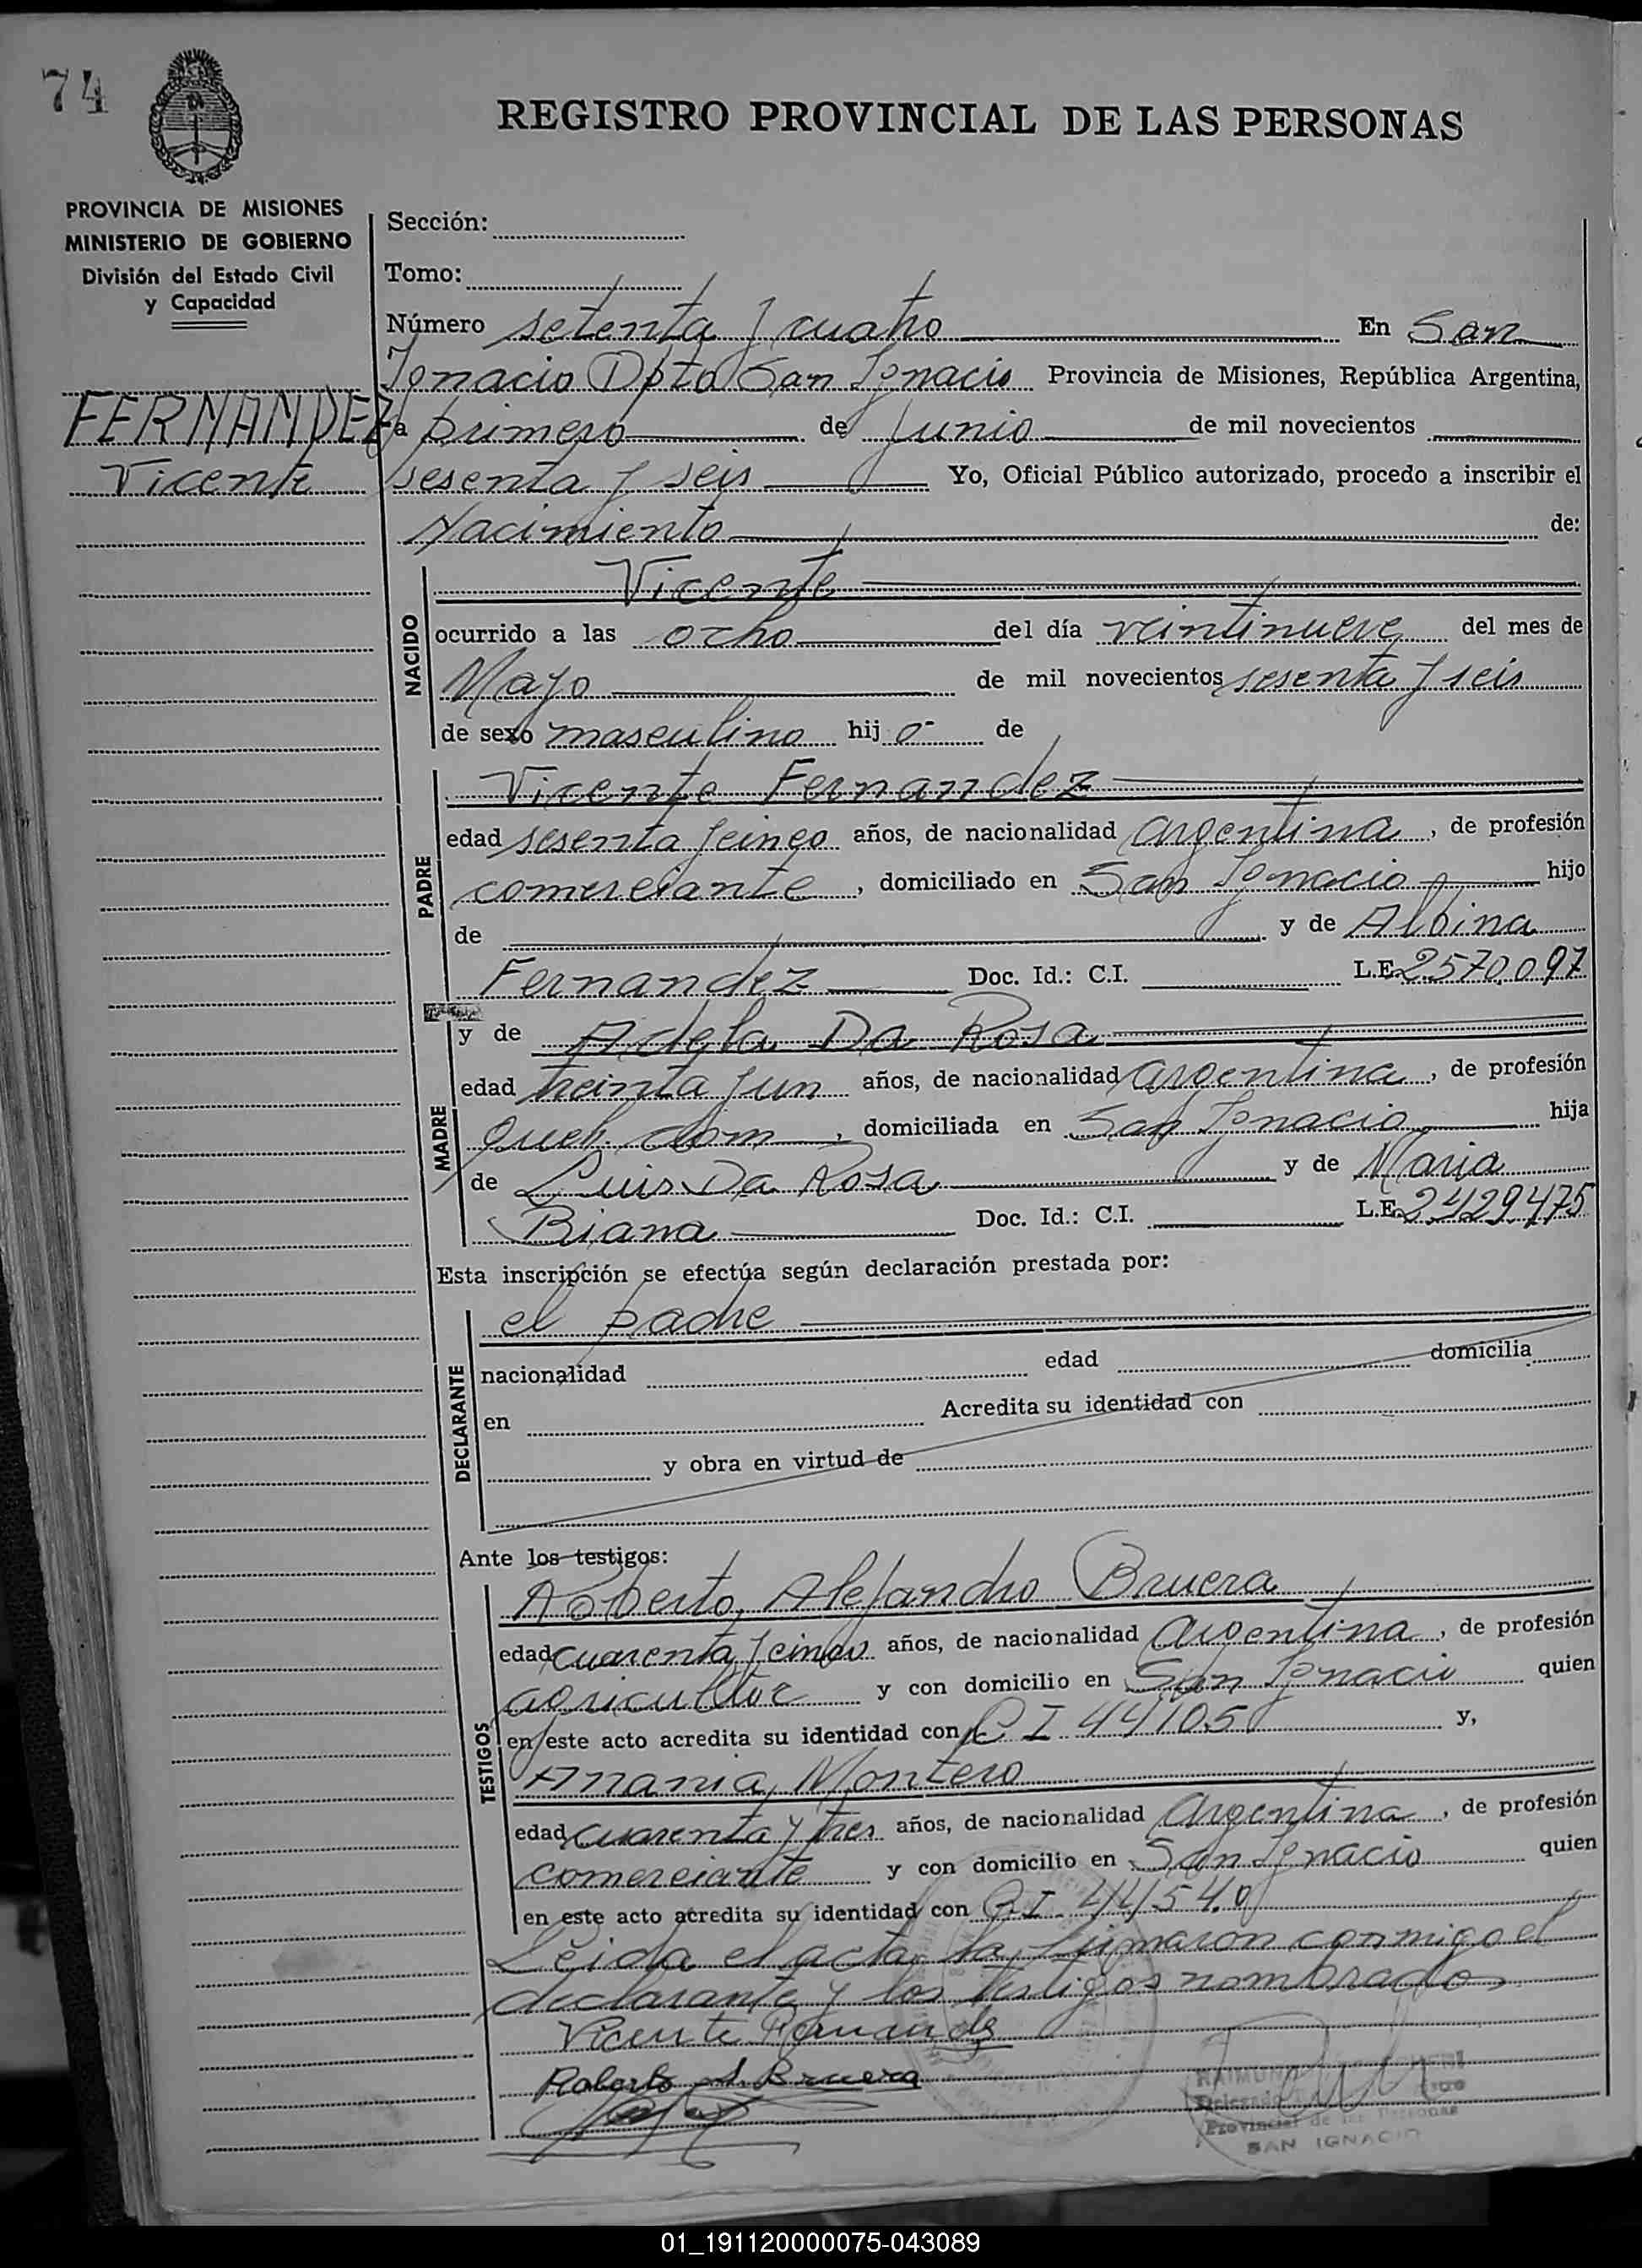 74
REGISTRO PROVINCIAL DE LAS PERSONAS
PROVINCIA DE MISIONES
MINISTERIO DE GOBIERNO
División del Estado Civil
y Capacidad
FERNANDEZ
Vicente
Sección:
Tomo:
Número setenta y cuatro En San
Ignacio Dpto San Ignacio Provincia de Misiones, República Argentina,
a primero de Junio de mil novecientos
sesenta y seis Yo, Oficial Público autorizado, procedo a inscribir el
Nacimiento de:
NACIDO
Vicente
ocurrido a las ocho del día veintinueve del mes de
Mayo de mil novecientos sesenta y seis
de sexo masculino hijo de
PADRE
Vicente Fernandez
edad sesenta y cinco años, de nacionalidad argentina, de profesión
comerciante, domiciliado en San Ignacio hijo
de y de Albina
Fernandez Doc. Id.: C.I. L.E. 2570.097
MADRE
y de Adela Da Rosa
edad treinta y un años, de nacionalidad argentina, de profesión
queh. dom, domiciliada en San Ignacio hija
de Luis Da Rosa y de Maria
Biana Doc. Id.: C.I. L.E. 2.429.475
Esta inscripción se efectúa según declaración prestada por:
DECLARANTE
el padre
nacionalidad edad domicilia
en Acredita su identidad con
y obra en virtud de
Ante los testigos:
TESTIGOS
Roberto Alejandro Bruera
edad cuarenta y cinco años, de nacionalidad argentina, de profesión
agricultor y con domicilio en San Ignacio quien
en este acto acredita su identidad con C I 44105 y,
Anania Montero
edad cuarenta y tres años, de nacionalidad argentina, de profesión
comerciante y con domicilio en San Ignacio quien
en este acto acredita su identidad con C.I. 44540
Leida el acta, la firmaron conmigo el
declarante y los testigos nombrados
Vicente Fernandez
Roberto A. Bruera
Provincial de las Personas
SAN IGNACIO
01_191120000075-043089